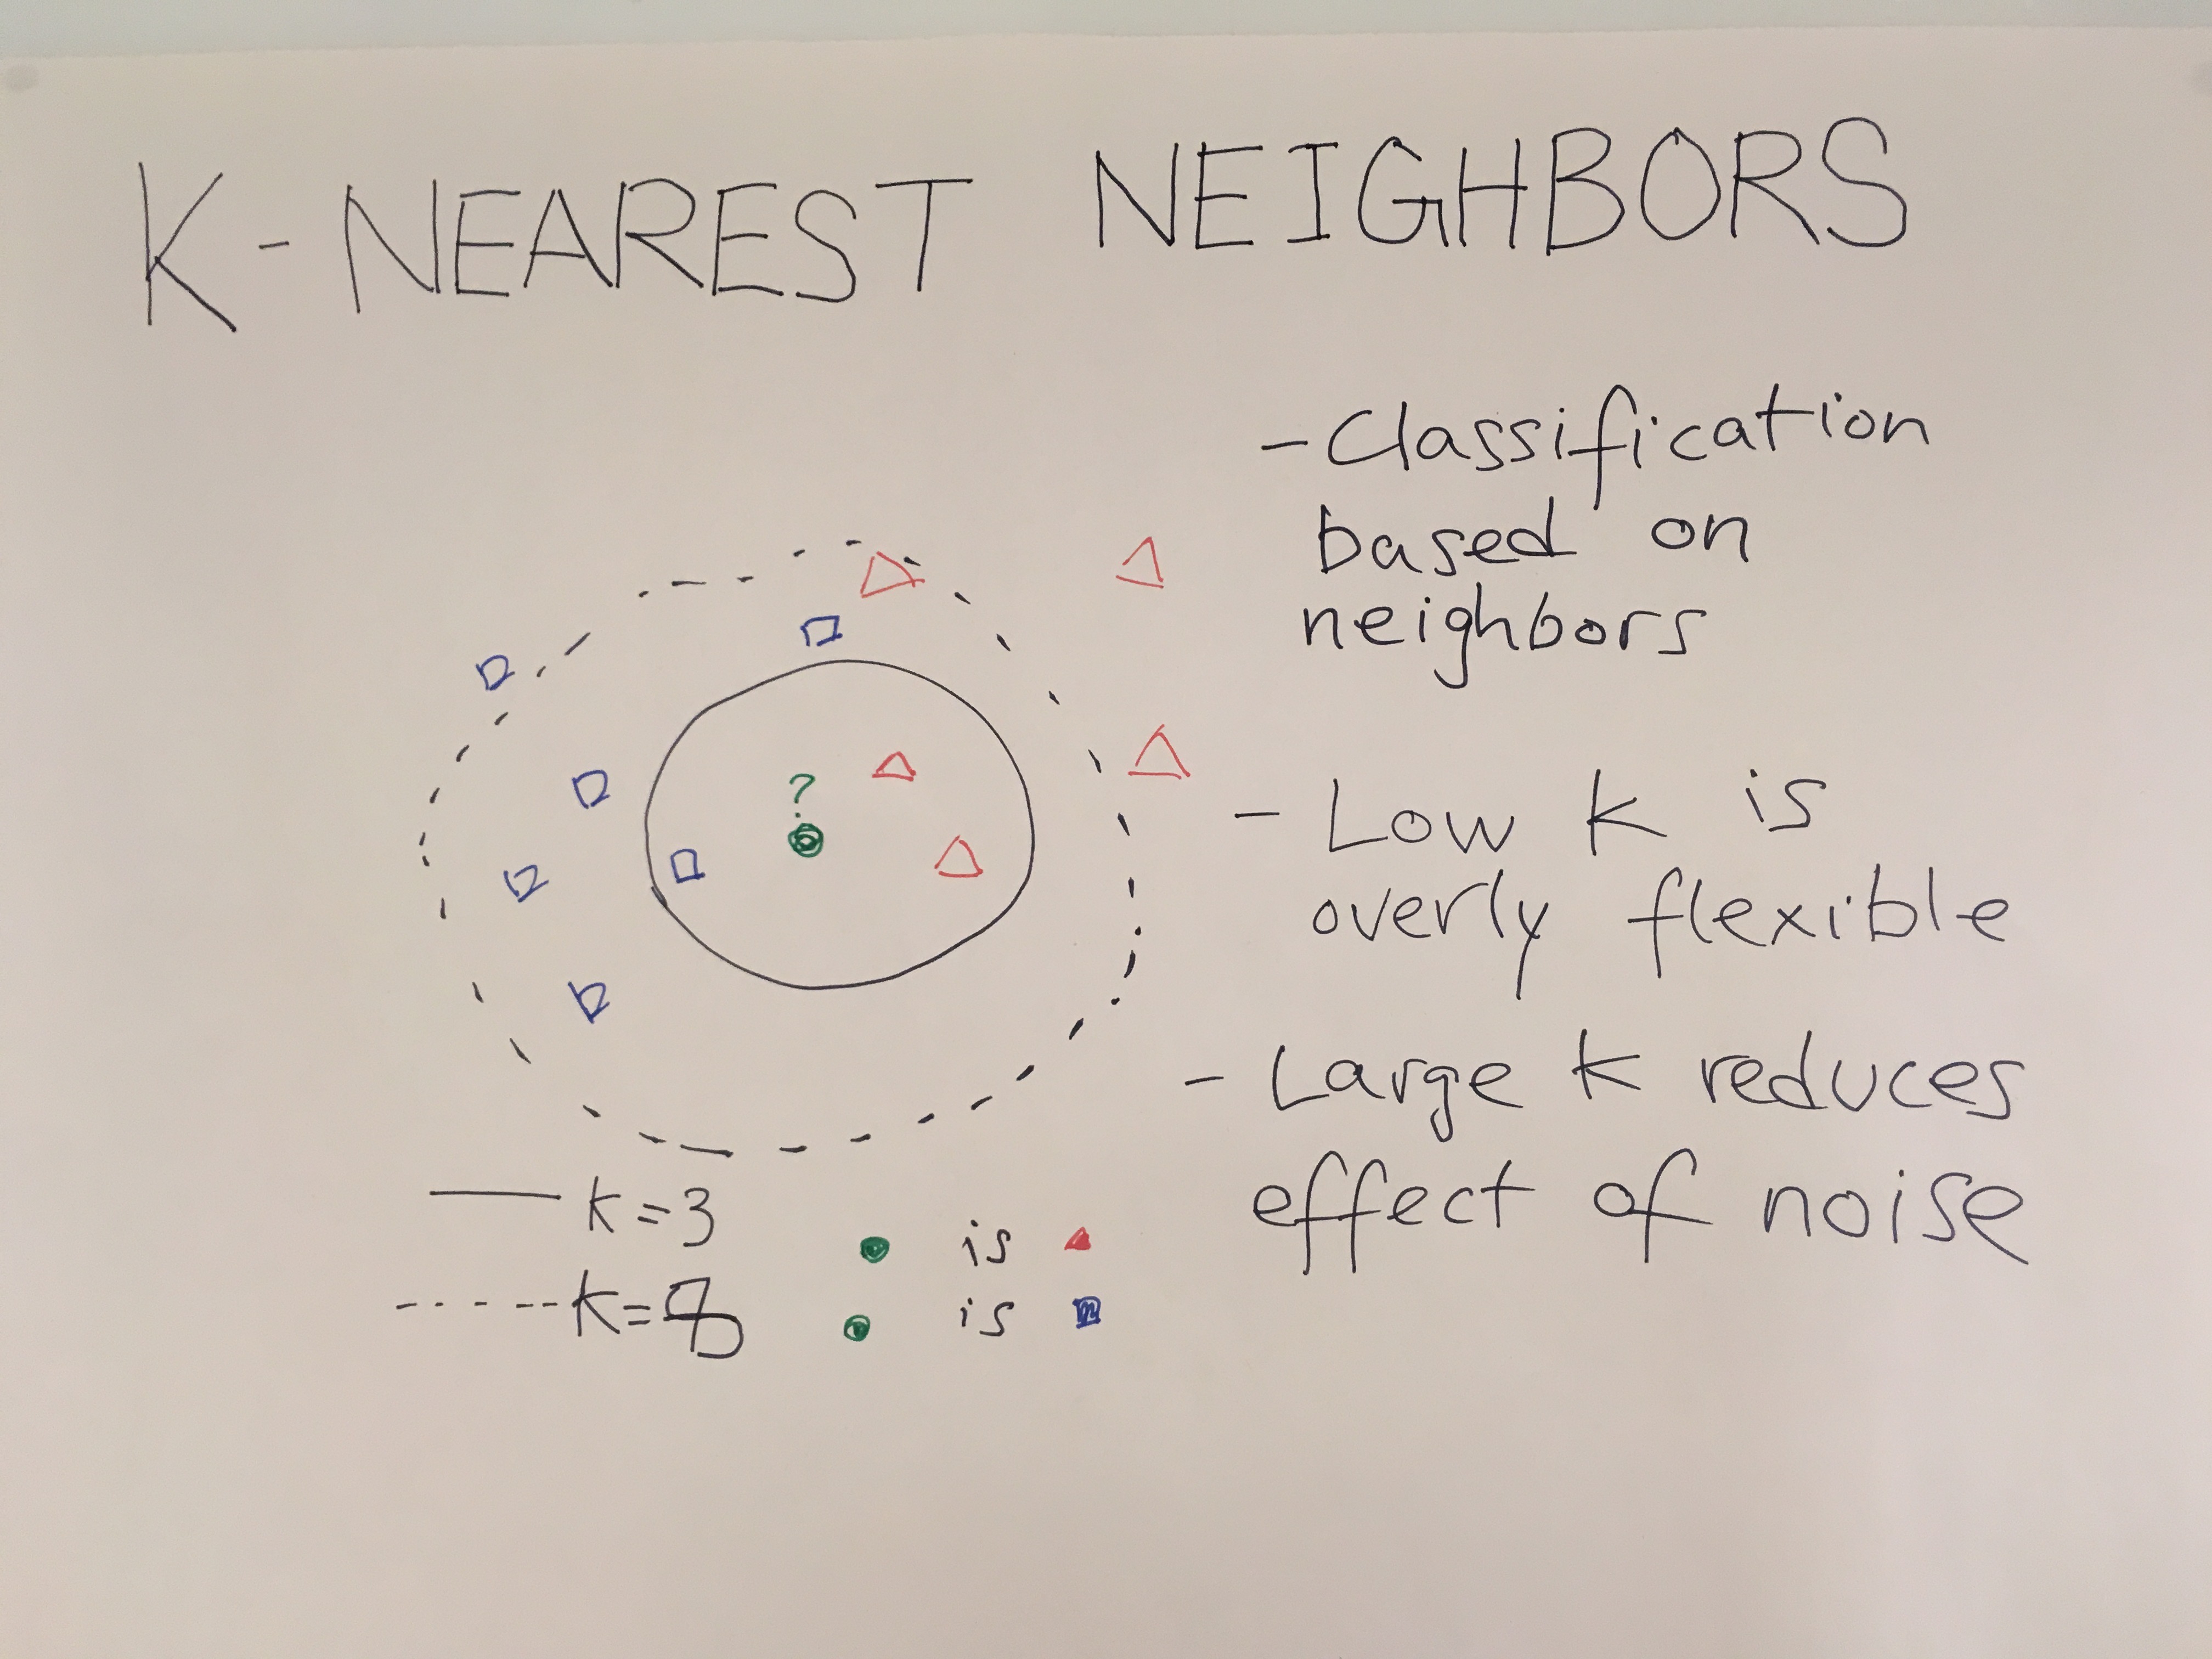 K-NEAREST NEIGHBORS
-Classification
based on
neighbors
?
- Low k is
overly flexible
- Large k reduces
effect of noise
k=3
is
k=8
is